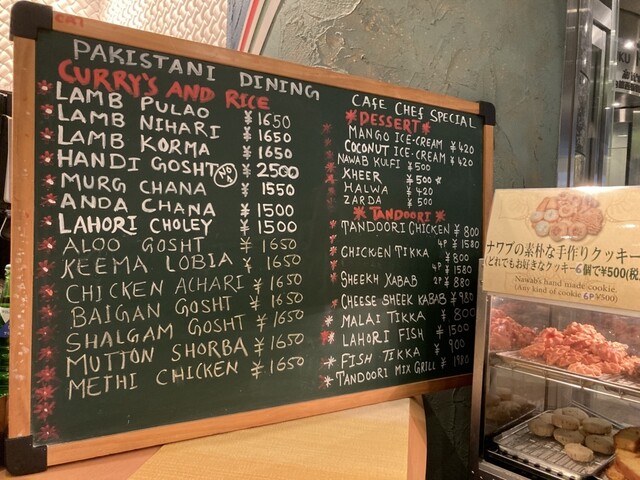 PAKISTANI DINING
CURRY'S AND RICE
LAMB PULAO ¥1650
LAMB NIHARI ¥1650
LAMB KORMA ¥1650
HANDI GOSHT ¥2500
MURG CHANA ¥1550
ANDA CHANA ¥1500
LAHORI CHOLEY ¥1500
ALOO GOSHT ¥1650
KEEMA LOBIA ¥1650
CHICKEN ACHARI ¥1650
BAIGAN GOSHT ¥1650
SHALGAM GOSHT ¥1650
MUTTON SHORBA ¥1650
METHI CHICKEN ¥1650
CAFE CHEF SPECIAL
DESSERT
MANGO ICE-CREAM ¥420
COCONUT ICE-CREAM ¥420
NAWAB KULFI ¥500
KHEER ¥500
HALWA ¥420
ZARDA ¥500
TANDOORI
TANDOORI CHICKEN ¥800
4P ¥1580
CHICKEN TIKKA ¥800
4P ¥1580
SHEEKH KABAB 2P ¥880
CHEESE SHEEK KABAB ¥980
MALAI TIKKA ¥800
LAHORI FISH ¥1500
FISH TIKKA ¥900
TANDOORI MIX GRILL ¥1980
ナワブの素朴な手作りクッキー
(どれでもお好きなクッキー6個で¥500(税
Nawab's hand made cookie.
(Any kind of cookie 6P ¥500)